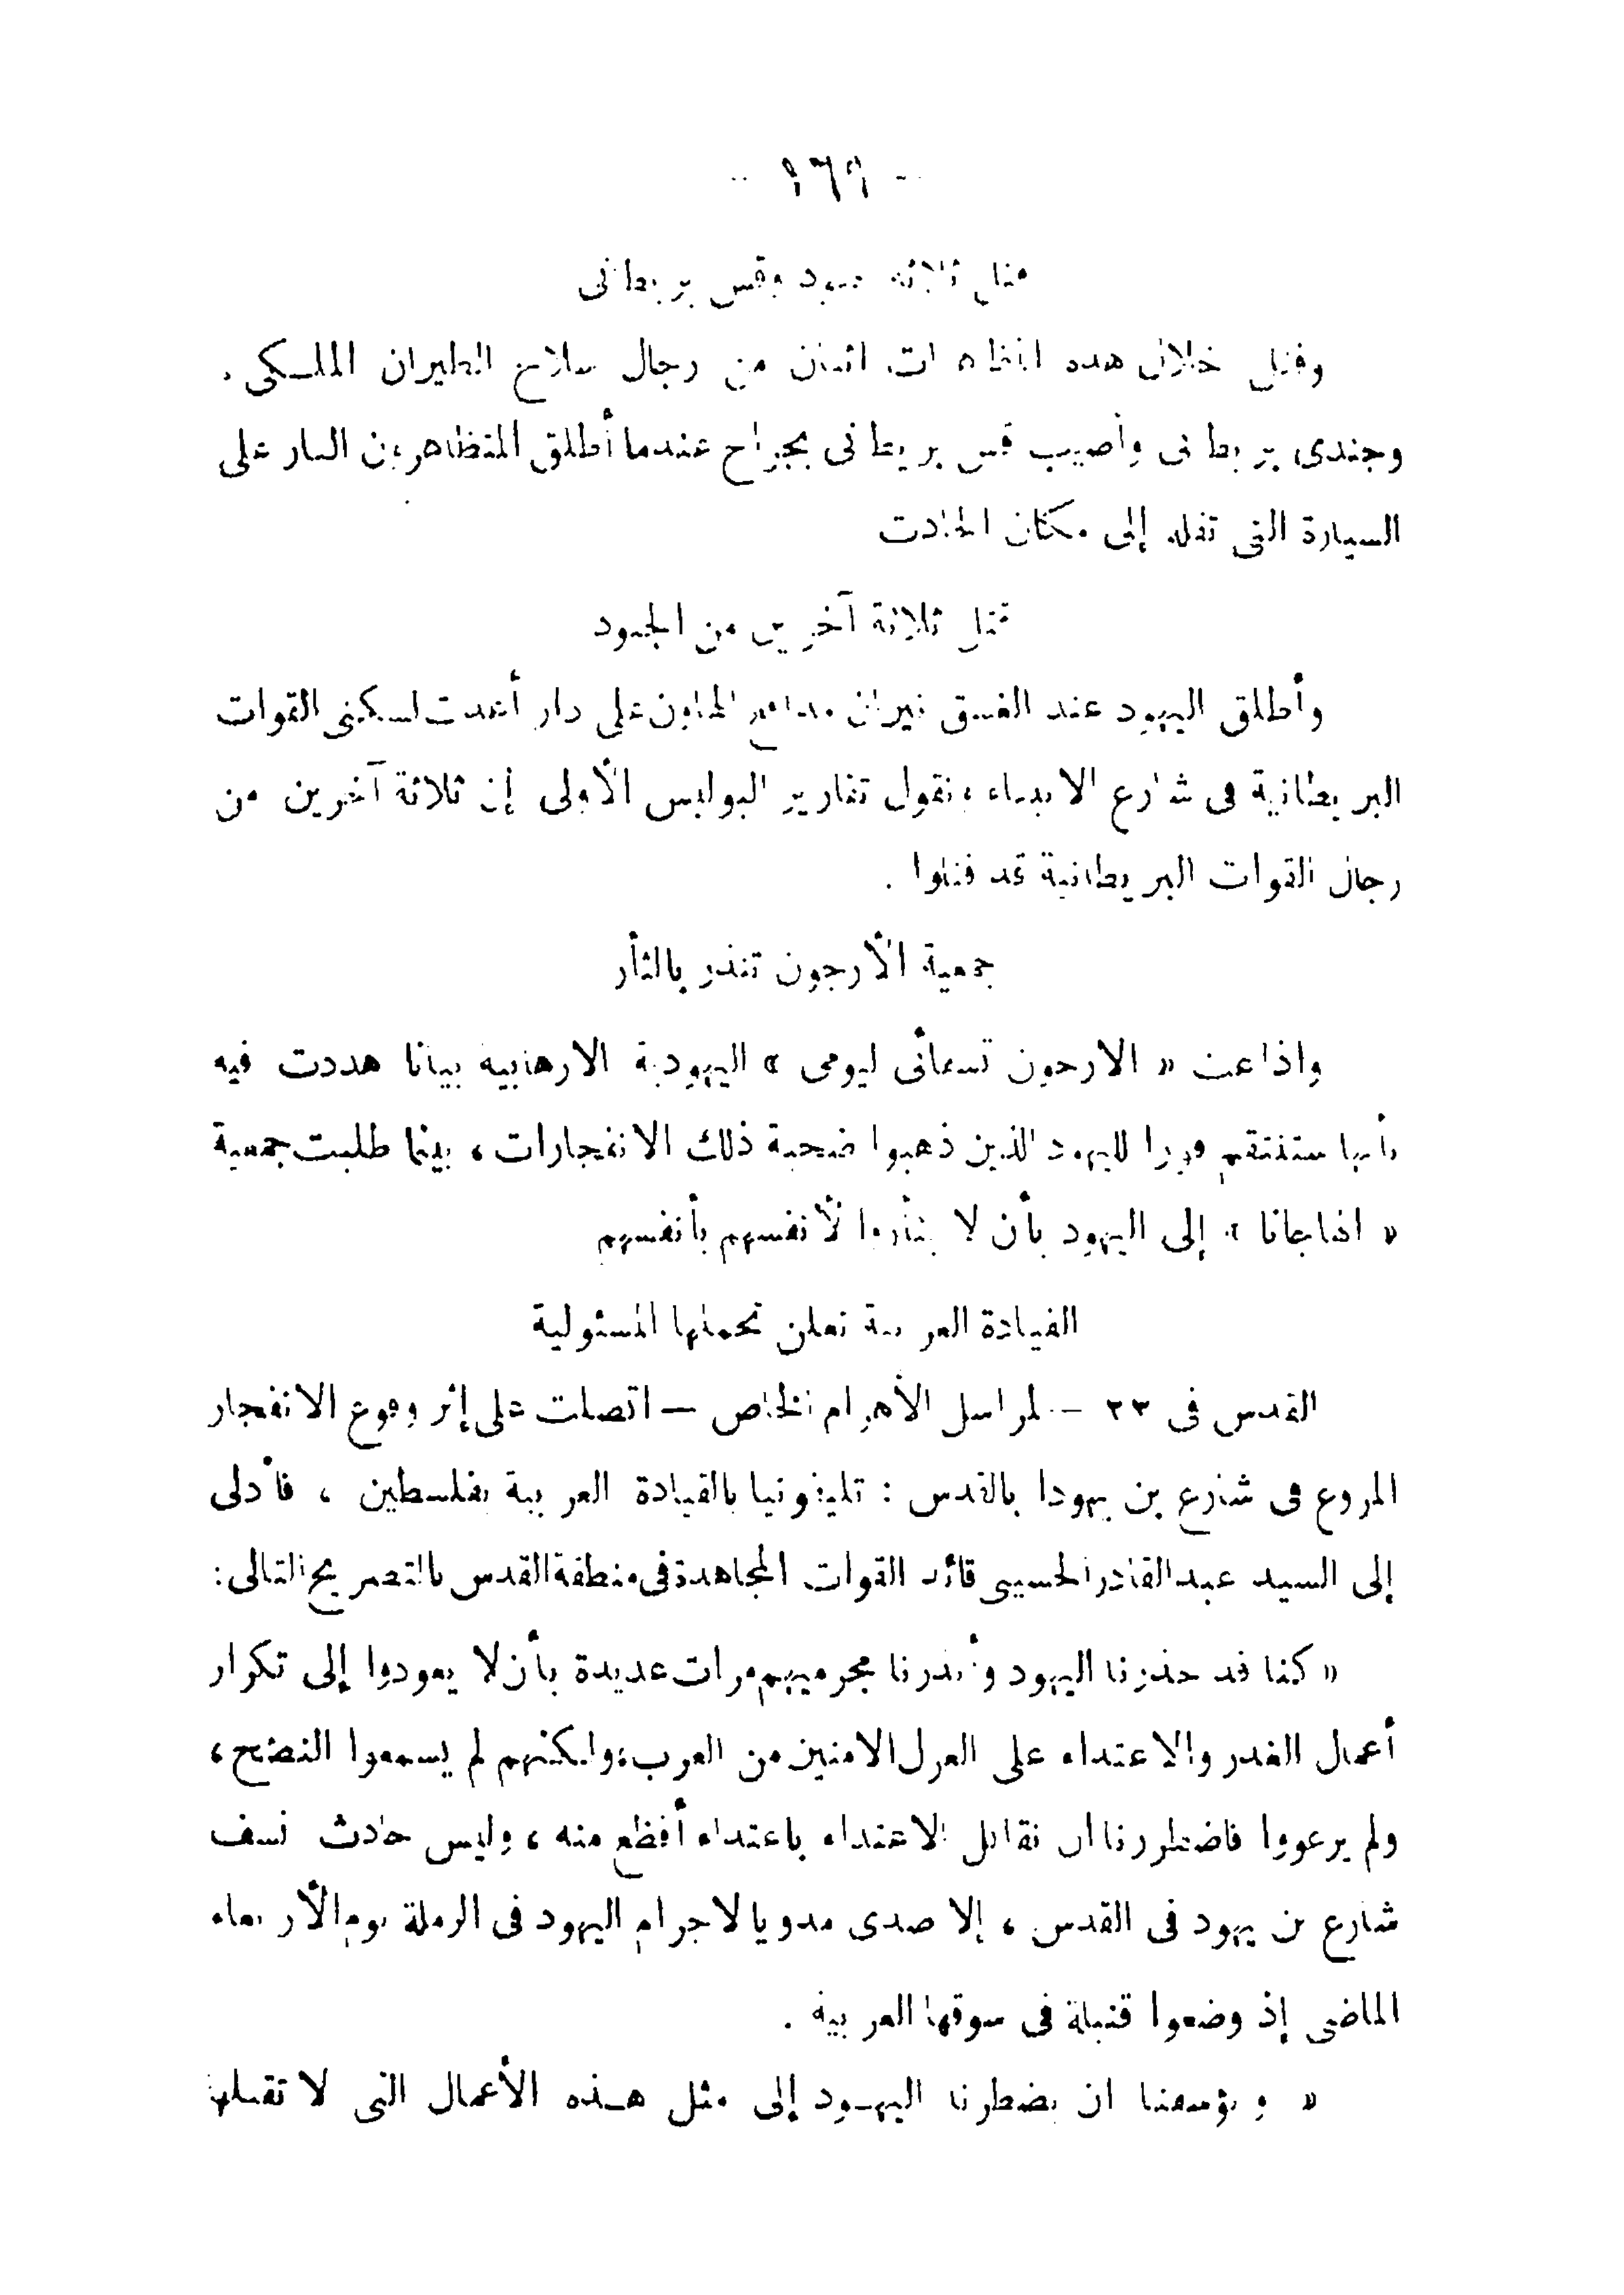 - ١٦٩ -
مقتل ثلاثة جنود وقس بريطانى
وقتل خلال هذه المظاهرات اثنان من رجال سلاح الطيران الملكى .
وجندى بريطانى وأصيب قس بريطانى بجراح عندما أطلق المتظاهرين النار على
السيارة التى تقله إلى مكان الحادث
مقتل ثلاثة آخرين من الجنود
وأطلق اليهود عند الغسق نيران مدافع الهاون على دار أعدت لسكنى القوات
البريطانية فى شارع الانبياء وتقول تقارير البوليس الأولى إن ثلاثة آخرين من
رجال القوات البريطانية قد قتلوا .
جمعية الأرجون تنذر بالثأر
واذاعت « الارجون تسفائى ليومى » اليهودية الارهابية بيانا هددت فيه
بأنها ستنتقم فورا لليهود الذين ذهبوا ضحية ذلك الانفجارات ، بينما طلبت جمعية
« الهاجانا » إلى اليهود بأن لا يثأروا لأنفسهم بأنفسهم
القيادة العربية تعلن تحملها المسئولية
القدس فى ٢٣ - لمراسل الأهرام الخاص — اتصلت على إثر وقوع الانفجار
المروع فى شارع بن يهودا بالقدس : تليفونيا بالقيادة العربية بفلسطين ، فأدلى
إلى السيد عبد القادر الحسينى قائد القوات المجاهدة فى منطقة القدس بالتصريح التالى :
« كنا قد حذرنا اليهود وأنذرنا مجرميهم مرات عديدة بأن لا يعودوا إلى تكرار
أعمال الغدر والاعتداء على العزل الامنين من العرب ، ولكنهم لم يسمعوا النصح ،
ولم يرعووا فاضطررنا ان نقابل الاعتداء باعتداء أفظع منه ، وليس حادث نسف
شارع بن يهود فى القدس ، إلا صدى مدويا لاجرام اليهود فى الرملة يوم الأربعاء
الماضى إذ وضعوا قنبلة فى سوقها العربية .
« ويؤسفنا ان يضطرنا اليهود إلى مثل هذه الأعمال التى لا تقبلها